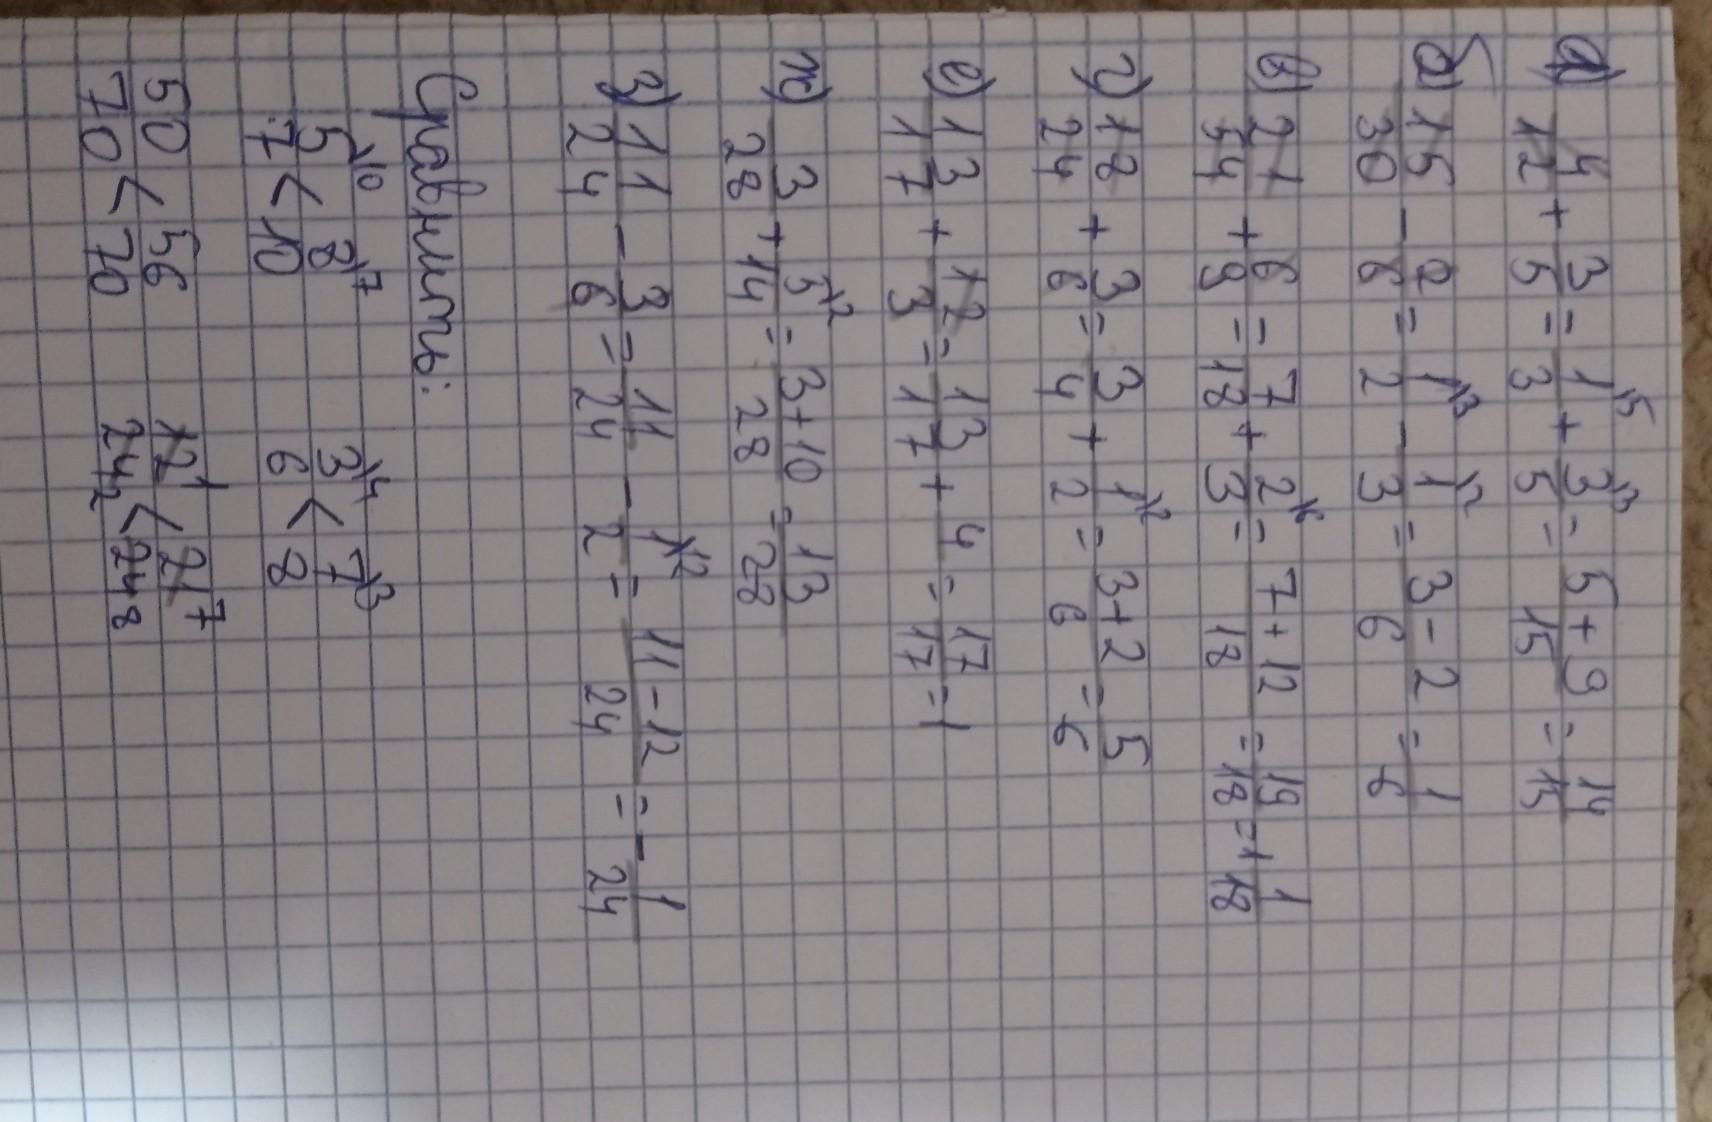 а) 4/12 + 3/5 = 1/3 \5 + 3/5 \3 = 5+9/15 = 14/15
б) 15/30 - 2/6 = 1/2 \3 - 1/3 \2 = 3-2/6 = 1/6
в) 21/54 + 6/9 = 7/18 + 2/3 \6 = 7+12/18 = 19/18 = 1 1/18
г) 18/24 + 3/6 = 3/4 + 1/2 \2 = 3+2/6 = 5/6
е) 13/17 + 12/3 = 13/17 + 4 = 17/17 = 1
ж) 3/28 + 5/14 \2 = 3+10/28 = 13/28
з) 11/24 - 3/6 = 11/24 - 1/2 \12 = 11-12/24 = - 1/24
Сравнить:
5/7 \10 < 8/10 \7 3/6 \4 < 7/8 \3
50/70 < 56/70 12/24 1/2 < 21/24 7/8